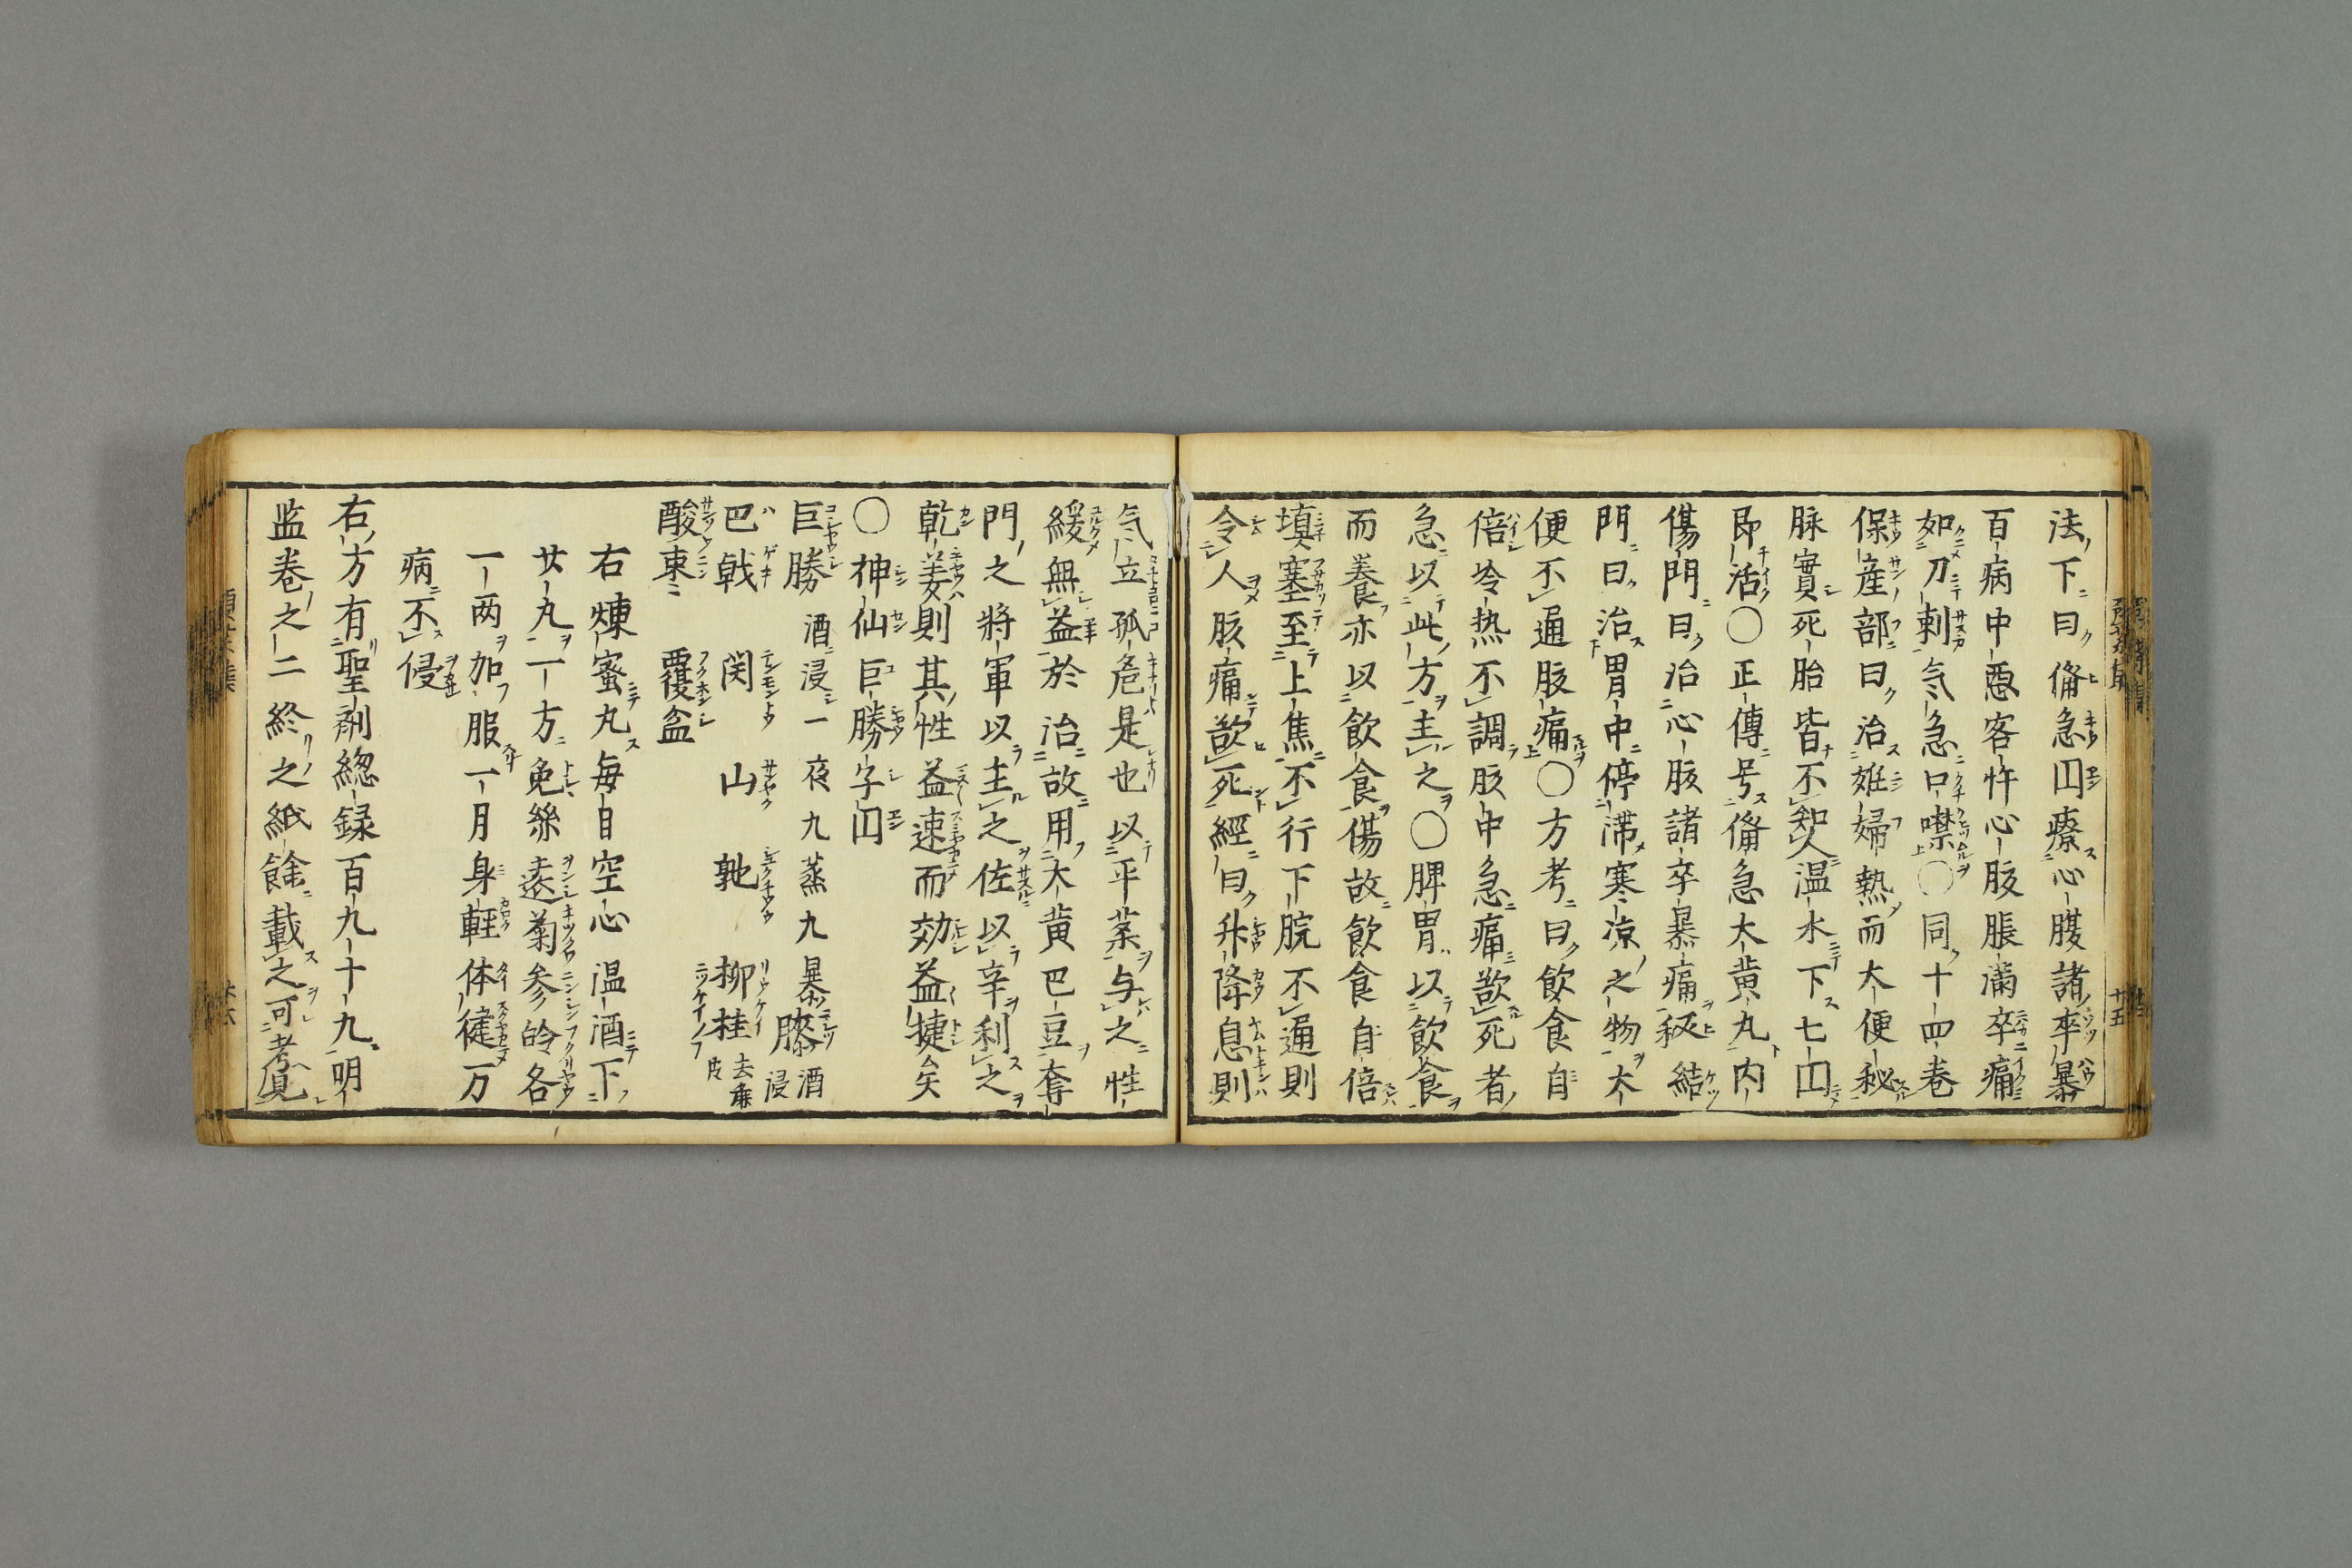 法下曰俻急囙療心腹諸卒暴
百病中悪客忤心胲脹滿卒痛
如刀刺気急口噤〇同十四巻
保産部曰治姙婦熱而大便秘
脉實死胎皆不知人温水下七囙
即活〇正傳号俻急大黄丸内
傷門曰治心胲諸卒暴痛秘結
門曰治胃中停滞寒凉之物大
便不通胲痛〇方考曰飲食自
倍冷热不調胲中急痛欲死者
急以此方主之〇脾胃以飲食
而養亦以飲食傷故飲食自倍
填塞至上焦不行下脘不通則
令人胲痛欲死經曰升降息則
気立孤危是也以平薬与之性
緩無益於治故用大黄巴豆奪
門之將軍以主之佐以辛利之
乾姜則其性益速而効益捷矣
〇神仙巨勝子囙
巨勝 酒浸一夜九蒸九暴 膝 酒浸
巴戟 関 山 虵 柳桂 去麁皮
酸棗 覆盆
右煉蜜丸毎目空心温酒下
廿丸一方兔絲遠菊参苓各
一两加服一月身軽体徤万
病不侵
右方有聖劑緫録百九十九明
监巻之二終之紙餘載之可考覓